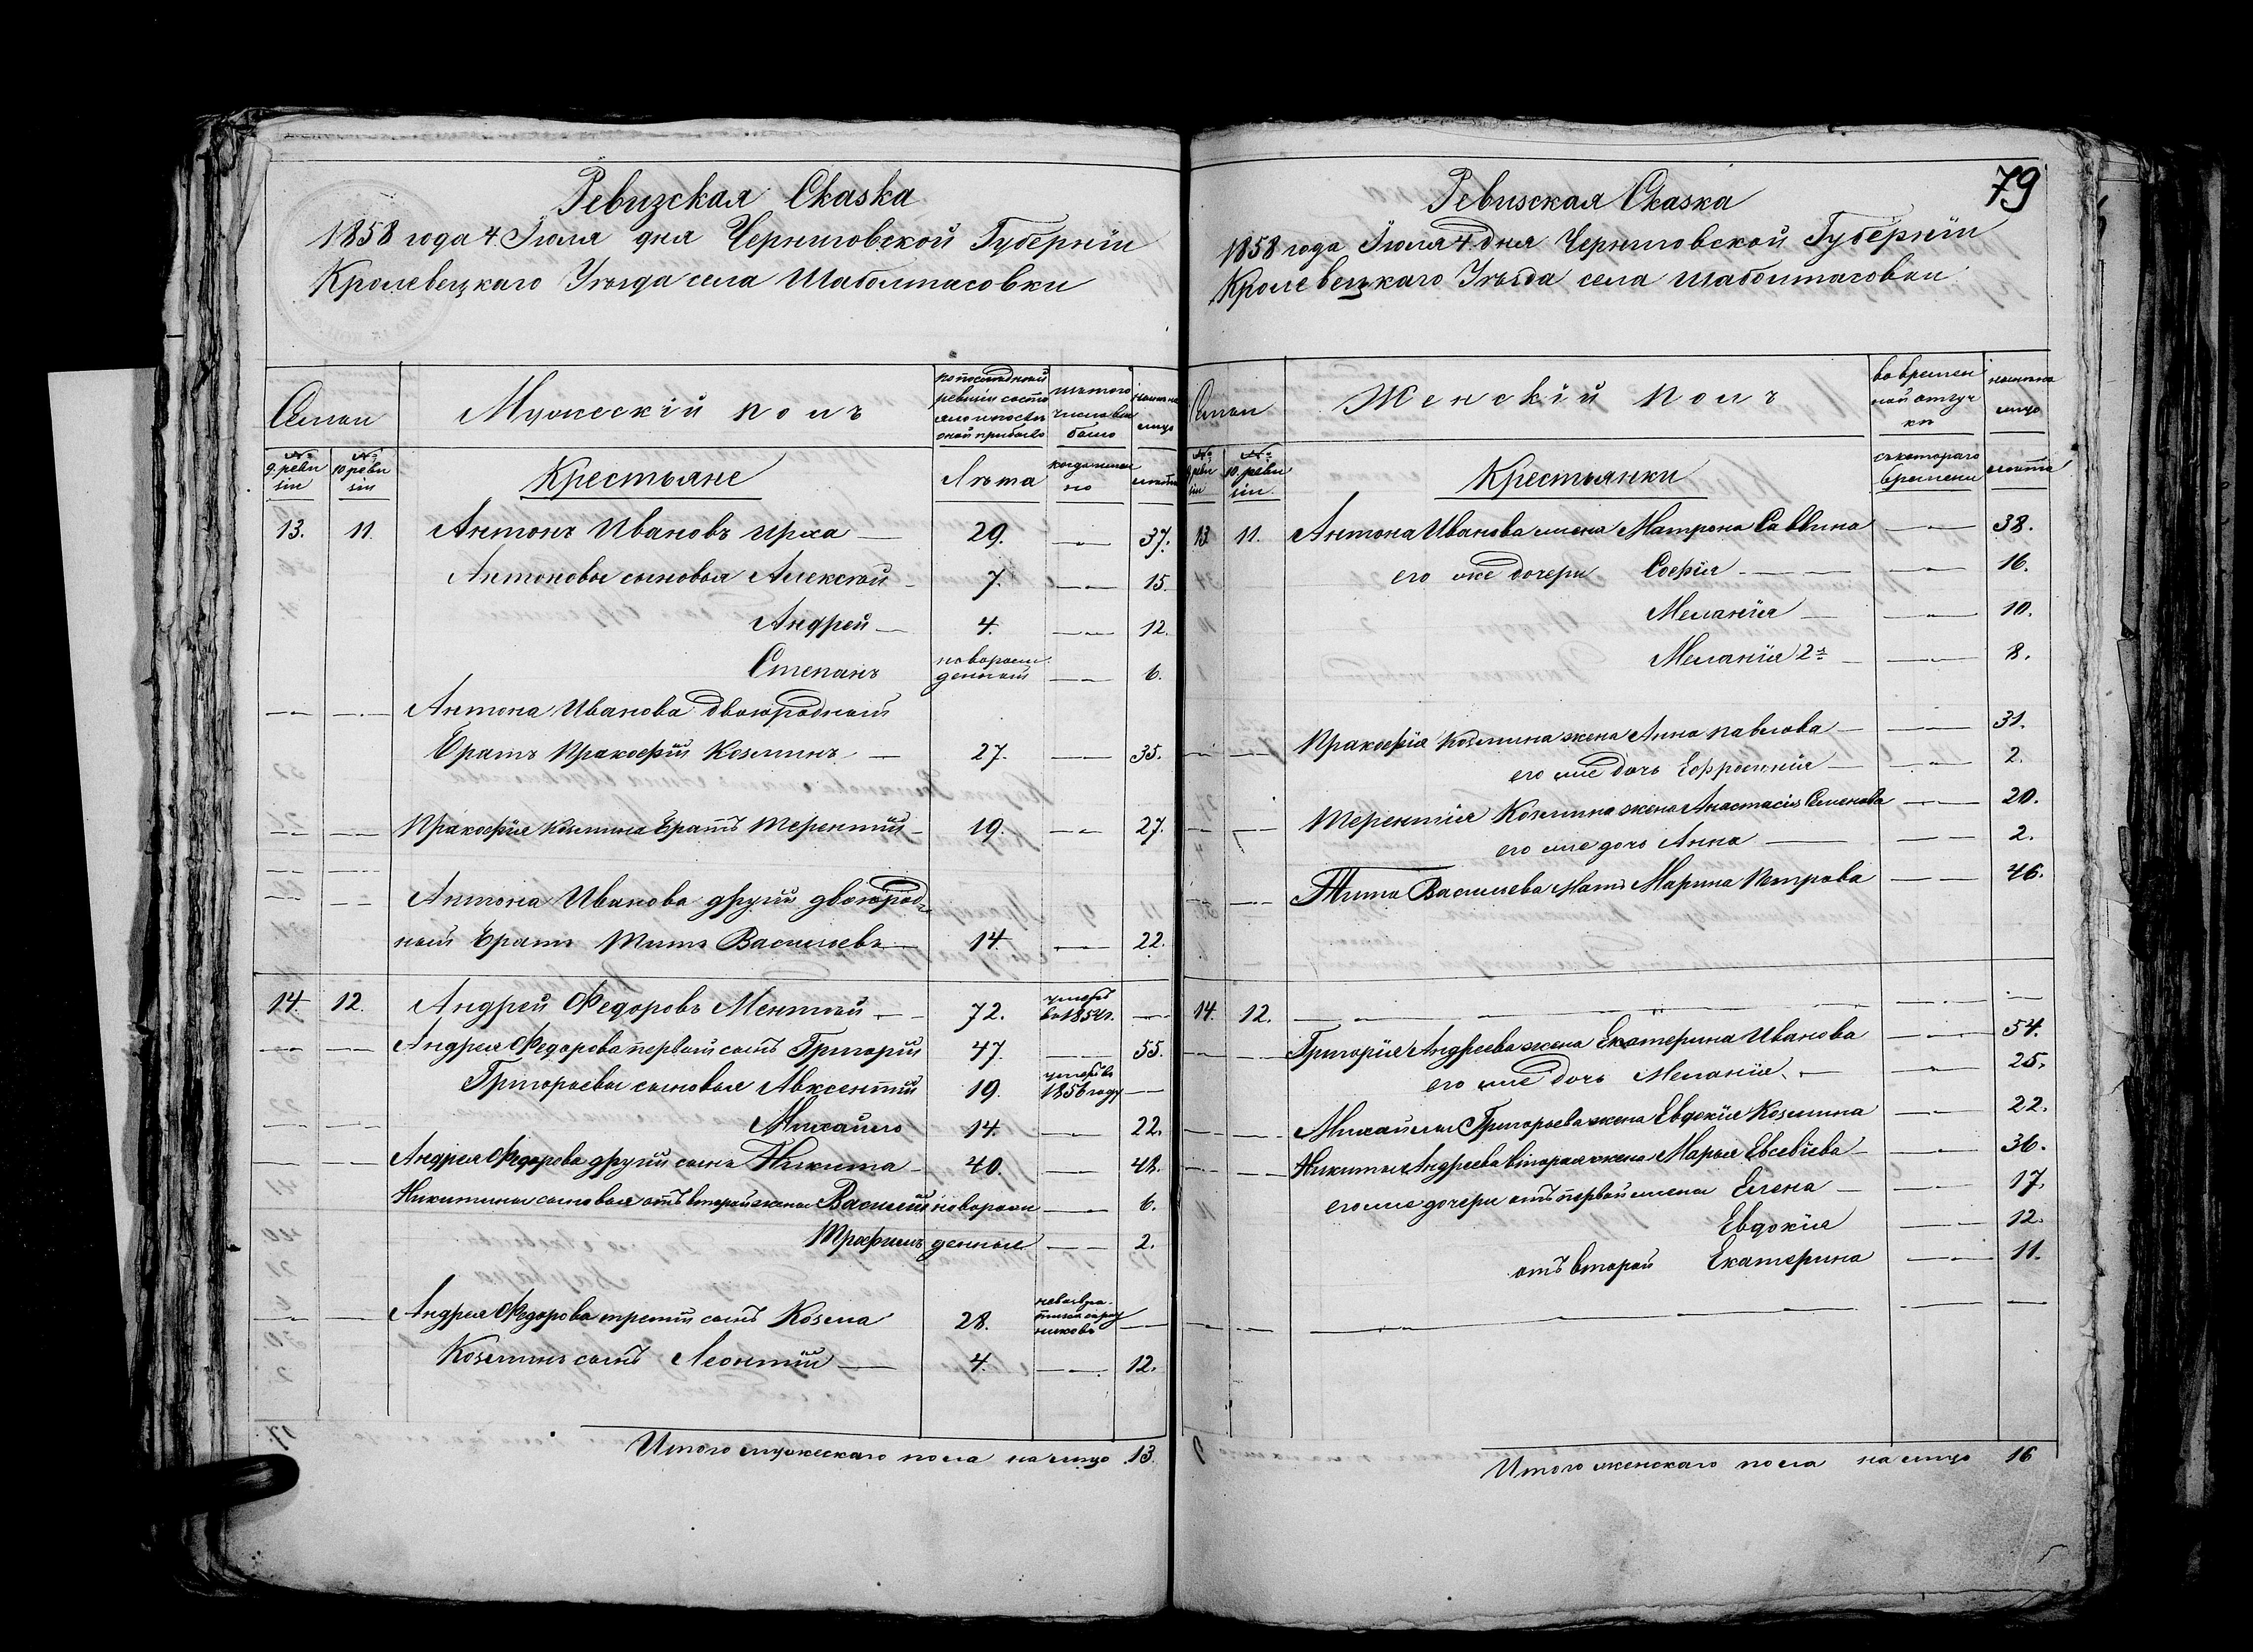 Ревизская Сказка
1858 года 4 Іюля дня Черниговской Губерніи
Кролевецкаго Уѣзда села Шаболтасовки
Семьи
Мужескій полъ
по последней
ревизіи состо
яло и после
оной прибыло
изъ того
числа вы
было
ныне на
лицо
№
9. реви
зіи
№
10 реви
зіи
Крестьяне
Лѣта
когда имен
но
лѣта
13. 11. Антонъ Ивановъ Ирха — 29. — 37.
Антоновы сыновья Алексей — 7. — 15.
Андрей — 4. — 12.
Степанъ новорож
денный — 6.
Антона Иванова двоюродный
братъ Пракофій Козминъ — 27. — 35.
Пракофія Козмина братъ Терентій — 19. — 27.
Антона Иванова другій двоюрод
ный братъ Титъ Васильевъ — 14. — 22.
14. 12. Андрей Федоровъ Ментей — 72. умеръ
въ 1854 г. —
Андрея Федорова первый сынъ Григорій 47. — 55.
Григорьевы сыновья Авксентій 19. умеръ въ
1856 году —
Михайло 14. — 22.
Андрея Федорова другій сынъ Никита — 40. — 48.
Никитины сыновья отъ второй жены Василій новорож — 6.
Трофимъ денные — 2.
Андрея Федорова третій сынъ Козма 28.
Козминъ сынъ Леонтій — 4. — 12.
Итого мужескаго пола на лицо 13.
79
Ревизская Сказка
1858 года Іюля 4 дня Черниговской Губерніи
Кролевецкаго Уѣзда села Шаболтасовки
Семьи
Женскій полъ
во времен
ной отлуч
ке
ныне на
лицо
№
9 реви
зіи
№
10. реви
зіи
Крестьянки
съ котораго
времени
лѣта
13 11. Антона Иванова жена Матрона Саввина — 38.
его же дочери Софія — 16.
Меланія — 10.
Меланія 2я — 8.
Пракофія Козмина жена Анна Павлова — 31.
его же дочь Ефросинія — 2.
Терентія Козмина жена Анастасія Семенова — 20.
его же дочь Анна — 2.
Тита Васильева мать Марина Петрова — 46.
14. 12. —
Григорія Андреева жена Екатерина Иванова — 54.
его же дочь Меланія — 25.
Михайлы Григорьева жена Евдокія Козмина — 22.
Никиты Андреева вторая жена Марья Евсевіева — 36.
его же дочери отъ первой жены Елена — 17.
Евдокія — 12.
отъ второй Екатерина — 11.
Итого женскаго пола на лицо 16